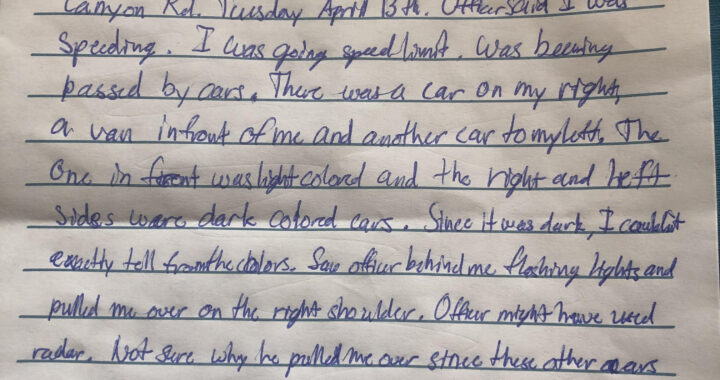 Canyon Rd. Tuesday April 13th. Officer said I was
Speeding. I was going speed limit. Was beeing
passed by cars. There was a car on my right,
a van infront of me and another car to my left. The
One in front was light colored and the right and left
sides were dark colored cars. Since it was dark, I couldnt
exactly tell from the colors. Saw officer behind me flashing lights and
pulled me over on the right shoulder. Officer might have used
radar. Not sure why he pulled me over since these other cars